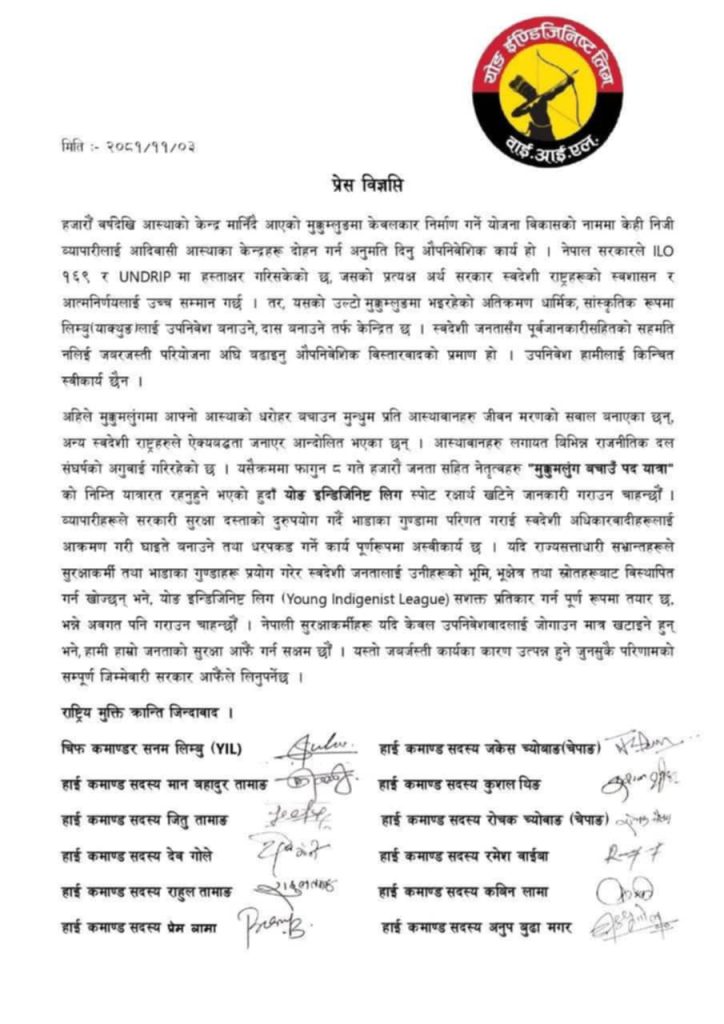 योङ ईण्डिजिनिष्ट लिग
वाई.आई.एल.
मिति :- २०८१/११/०३
प्रेस विज्ञप्ति
हजारौं बर्षदेखि आस्थाको केन्द्र मानिँदै आएको मुक्कुम्लुङमा केबलकार निर्माण गर्ने योजना बिकासको नाममा केही निजी
ब्यापारीलाई आदिबासी आस्थाका केन्द्रहरू दोहन गर्न अनुमति दिनु औपनिवेशिक कार्य हो । नेपाल सरकारले ILO
१६९ र UNDRIP मा हस्ताक्षर गरिसकेको छ, जसको प्रत्यक्ष अर्थ सरकार स्वदेशी राष्ट्रहरूको स्वशासन र
आत्मनिर्णयलाई उच्च सम्मान गर्छ । तर, यसको उल्टो मुक्कुम्लुङमा भइरहेको अतिक्रमण धार्मिक, सांस्कृतिक रूपमा
लिम्बु(याक्थुङ)लाई उपनिवेश बनाउने, दास बनाउने तर्फ केन्द्रित छ । स्वदेशी जनतासँग पूर्वजानकारीसहितको सहमति
नलिई जबरजस्ती परियोजना अघि बढाइनु औपनिवेशिक बिस्तारबादको प्रमाण हो । उपनिवेश हामीलाई किन्चित
स्वीकार्य छैन ।
अहिले मुक्कुमलुंगमा आफ्नो आस्थाको धरोहर बचाउन मुन्धुम प्रति आस्थाबानहरु जीबन मरणको सबाल बनाएका छन्,
अन्य स्वदेशी राष्ट्रहरुले ऐक्यबद्धता जनाएर आन्दोलित भएका छन् । आस्थाबानहरु लगायत बिभिन्न राजनीतिक दल
संघर्षको अगुबाई गरिरहेको छ । यसैक्रममा फागुन ८ गते हजारौं जनता सहित नेतृत्वहरु "मुक्कुमलुंग बचाउँ पद यात्रा"
को निम्ति यात्रारत रहनुहुने भएको हुदाँ योङ इन्डिजिनिष्ट लिग स्पोट रक्षार्थ खटिने जानकारी गराउन चाहन्छौँ ।
ब्यापारीहरूले सरकारी सुरक्षा दस्ताको दुरुपयोग गर्दै भाडाका गुण्डामा परिणत गराई स्वदेशी अधिकारबादीहरूलाई
आक्रमण गरी घाइते बनाउने तथा धरपकड गर्ने कार्य पूर्णरूपमा अस्वीकार्य छ । यदि राज्यसत्ताधारी सम्भ्रान्तहरूले
सुरक्षाकर्मी तथा भाडाका गुण्डाहरू प्रयोग गरेर स्वदेशी जनतालाई उनीहरूको भूमि, भूक्षेत्र तथा स्रोतहरूबाट विस्थापित
गर्न खोज्छन् भने, योङ इन्डिजिनिष्ट लिग (Young Indigenist League) सशक्त प्रतिकार गर्न पूर्ण रूपमा तयार छ,
भन्ने अवगत पनि गराउन चाहन्छौँ । नेपाली सुरक्षाकर्मीहरू यदि केवल उपनिवेशबादलाई जोगाउन मात्र खटाइने हुन्
भने, हामी हाम्रो जनताको सुरक्षा आफैँ गर्न सक्षम छौँ । यस्तो जबर्जस्ती कार्यका कारण उत्पन्न हुने जुनसुकै परिणामको
सम्पूर्ण जिम्मेबारी सरकार आफैँले लिनुपर्नेछ ।
राष्ट्रिय मुक्ति क्रान्ति जिन्दाबाद ।
चिफ कमाण्डर सनम लिम्बु (YIL)
हाई कमाण्ड सदस्य जकेस च्योबाङ(चेपाङ)
हाई कमाण्ड सदस्य मान बहादुर तामाङ
हाई कमाण्ड सदस्य कुशल घिङ
हाई कमाण्ड सदस्य जितु तामाङ
हाई कमाण्ड सदस्य रोचक च्योबाङ (चेपाङ)
हाई कमाण्ड सदस्य देब गोले
हाई कमाण्ड सदस्य रमेश बाईबा
हाई कमाण्ड सदस्य राहुल तामाङ
हाई कमाण्ड सदस्य कबिन लामा
हाई कमाण्ड सदस्य प्रेम बामा
हाई कमाण्ड सदस्य अनुप बुढा मगर